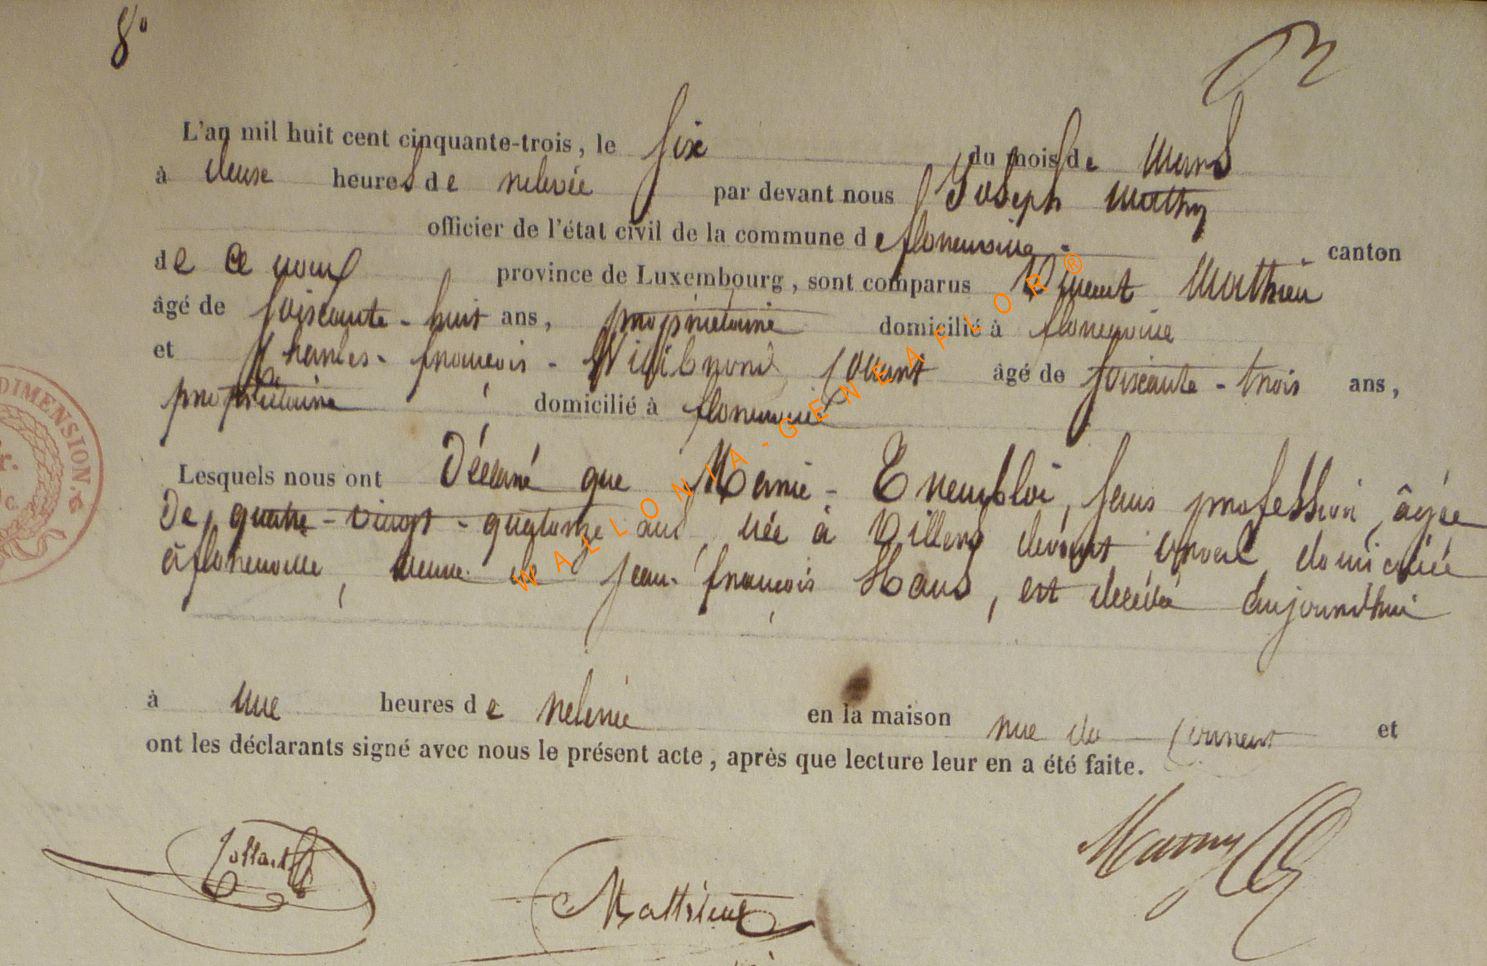 8°
L'an mil huit cent cinquante-trois, le six du mois de Mars
à deux heures de relevée par devant nous Joseph Mathy
officier de l'état civil de la commune de florenville canton
de ce nom province de Luxembourg, sont comparus Vincent Mathieu
âgé de soixante-huit ans, propriétaire domicilié à florenville
et Charles-françois- âgé de soixante-trois ans,
propriétaire domicilié à florenville
Lesquels nous ont Déclaré que Marie- sans profession, âgée
De quatre-vingt-quatorze ans, née à Villers devant orval, domiciliée
à florenville, veuve de jean-françois Haus, est décédée aujourd'hui
à une heures de relevée en la maison rue de et
ont les déclarants signé avec nous le présent acte, après que lecture leur en a été faite.
Collart Mathieu Mathy
DIMENSION.
WALLONIA-GENEAFLOR®